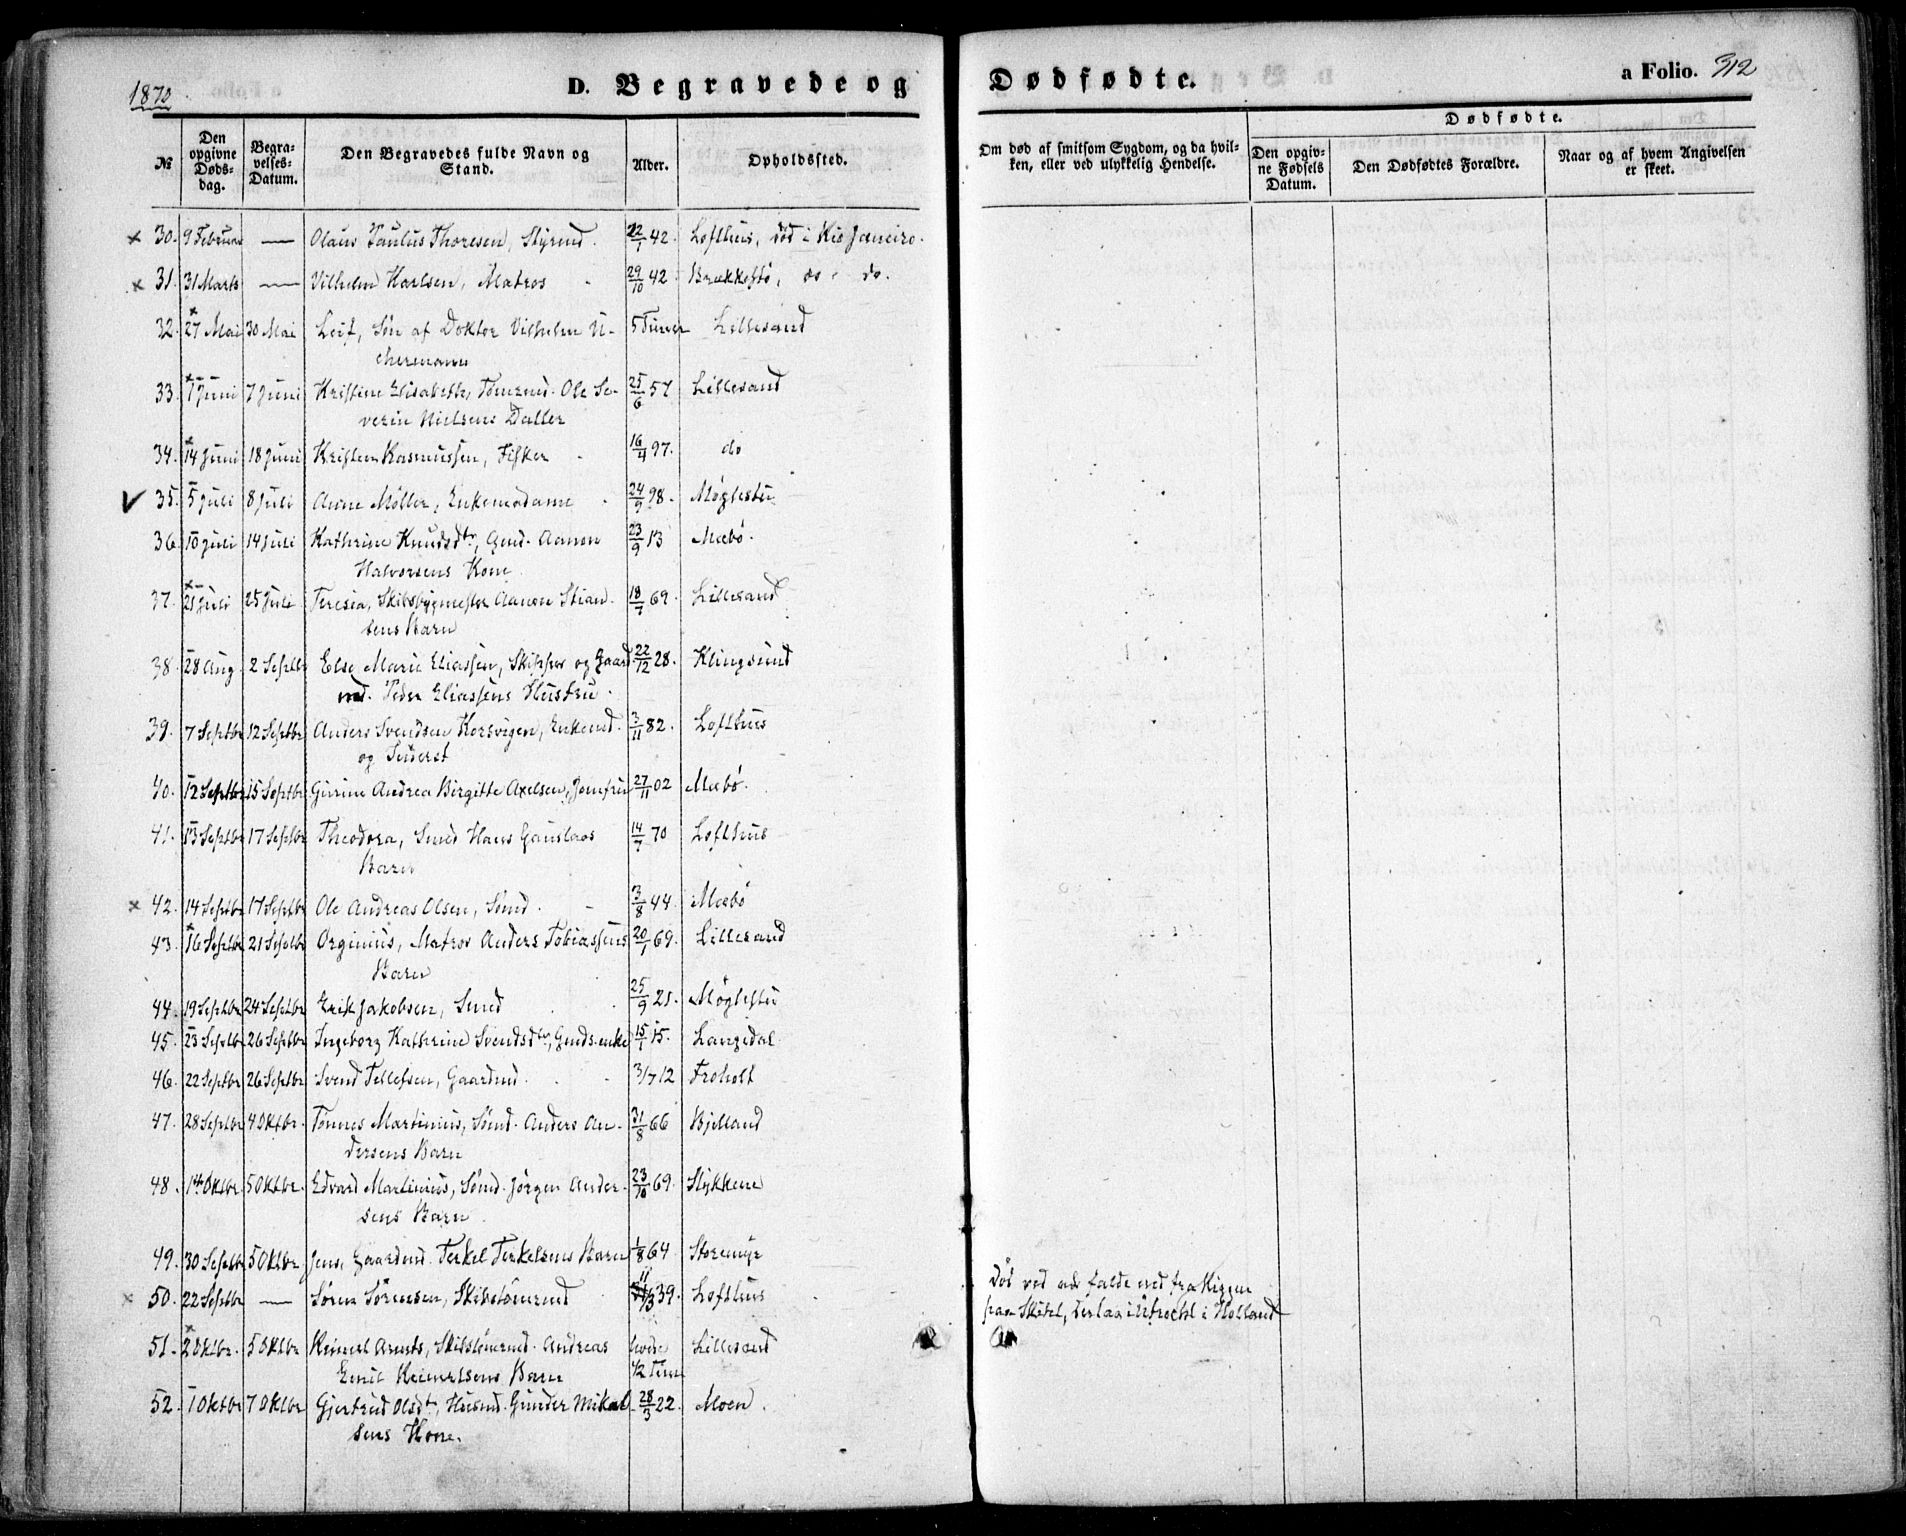 1870
D. Begravede og Dødfødte.
a Folio. 312
№
Den opgivne Døds-dag.
Begra-velses-Datum.
Den Begravedes fulde Navn og Stand.
Alder.
Opholdssted.
Om død af smitsom Sygdom, og da hvil-ken, eller ved ulykkelig Hendelse.
Dødfødte.
Den opgiv-ne Fødsels Datum.
Den Dødfødtes Forældre.
Naar og af hvem Angivelsen er skeet.
× 30. 9 Februar — Olaus Paulus Thoresen, Styrmd. 22/1 42. Lofthus, død i Rio Janeiro.
× 31. 31 Marts — Vilhelm Karlsen, Matros 29/10 42. Brækkestø, do - do.
32. 27 Mai 30 Mai Leif, Søn af Doktor Vilhelm U-
chermann
5 Timer Lillesand
33. 1 Juni 7 Juni Kristine Elisabeth, Tømrmd. Ole Se-
verin Nielsens Datter
25/6 57 Lillesand
34. 14 Juni 18 Juni Kristen Rasmussen, Fisker 16/4 97. do
✓ 35. 5 Juli 8 Juli Anne Møller, Enkemadame 24/9 98. Møglestu
36. 10 Juli 14 Juli Kathrine Knudsdtr, Gmd. Aanon
Halvorsens Kone
23/9 13 Mæbø.
37. 21 Juli 25 Juli Teresia, Skibsbygmester Aanon Stian-
sens Barn
18/7 69. Lillesand
38. 28 Aug. 2 Septbr Else Marie Eliassen, Skipper og Gaard
md. Peder Eliassens Hustru.
22/12 28. Klingsund
39. 7 Septbr 12 Septbr Anders Svendsen Korsvigen, Enkemd.
og Inderst
3/11 82. Lofthus
40. 12 Septbr 15 Septbr Gurine Andrea Birgitte Axelsen, Jomfru 27/11 02 Mæbø.
41. 13 Septbr 17 Septbr Theodora, Smed Hans Gauslaas
Barn
14/7 70 Lofthus
× 42. 14 Septbr 17 Septbr Ole Andreas Olsen, Sømd. 3/8 44. Mæbø
43. 16 Septbr 21 Septbr Orginius, Matros Anders Tobiassens
Barn
20/1 69. Lillesand
44. 19 Septbr 24 Septbr Erik Jakobsen, Smed 25/9 21. Møglestu
45. 23 Septbr 26 Septbr Ingeborg Kathrine Svendsdtr, Gmds.enke 15/1 15. Langedal
46. 22 Septbr 26 Septbr Svend Tellefsen, Gaardmd. 3/7 12 Froholt
47. 28 Septbr 4 Oktbr. Tønnes Martinius, Sømd. Anders An-
dersens Barn
31/8 66 Bjelland
48. 1 Oktbr. 5 Oktbr. Edvard Martinius, Sømd. Jørgen Ander-
sens Barn
23/10 69. Stykkene
49. 30 Septbr 5 Oktbr Jens, Gaardmd. Terkel Terkelsens Barn 1/8 64 Storemyr
× 50. 22 Septbr — Søren Sørensen, Skibstømrmd 11/3 39. Lofthus
Død ved at falde ned fra Riggen
paa Skibet, der laa i Utrecht i Holland
51. 2 Oktbr. 5 Oktbr Reinert Arents, Skibstømrmd. Andreas
Emil Reinertsens Barn
levede
1/2 Time
Lillesand
52. 1 Oktbr 7 Oktbr Gjertrud Olsdtr, Husmd. Gunder Mikal-
sens Kone.
28/3 22. Moen.